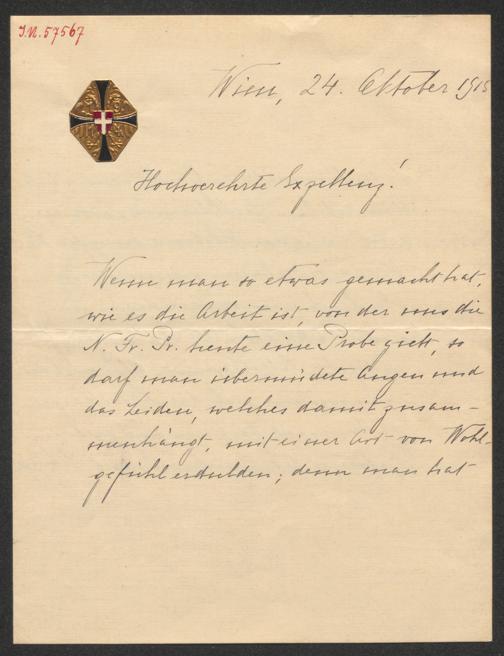 I.N. 57567
Wien, 24. Oktober 1915
Hochverehrte Exzellenz!
Wenn man so etwas gemacht hat,
wie es die Arbeit ist, von der uns die
N. Fr. Pr. heute eine Probe giebt, so
darf man übermüdete Augen und
das Leiden, welches damit zusam-
menhängt, mit einer Art von Wohl-
gefühl erdulden; denn man hat